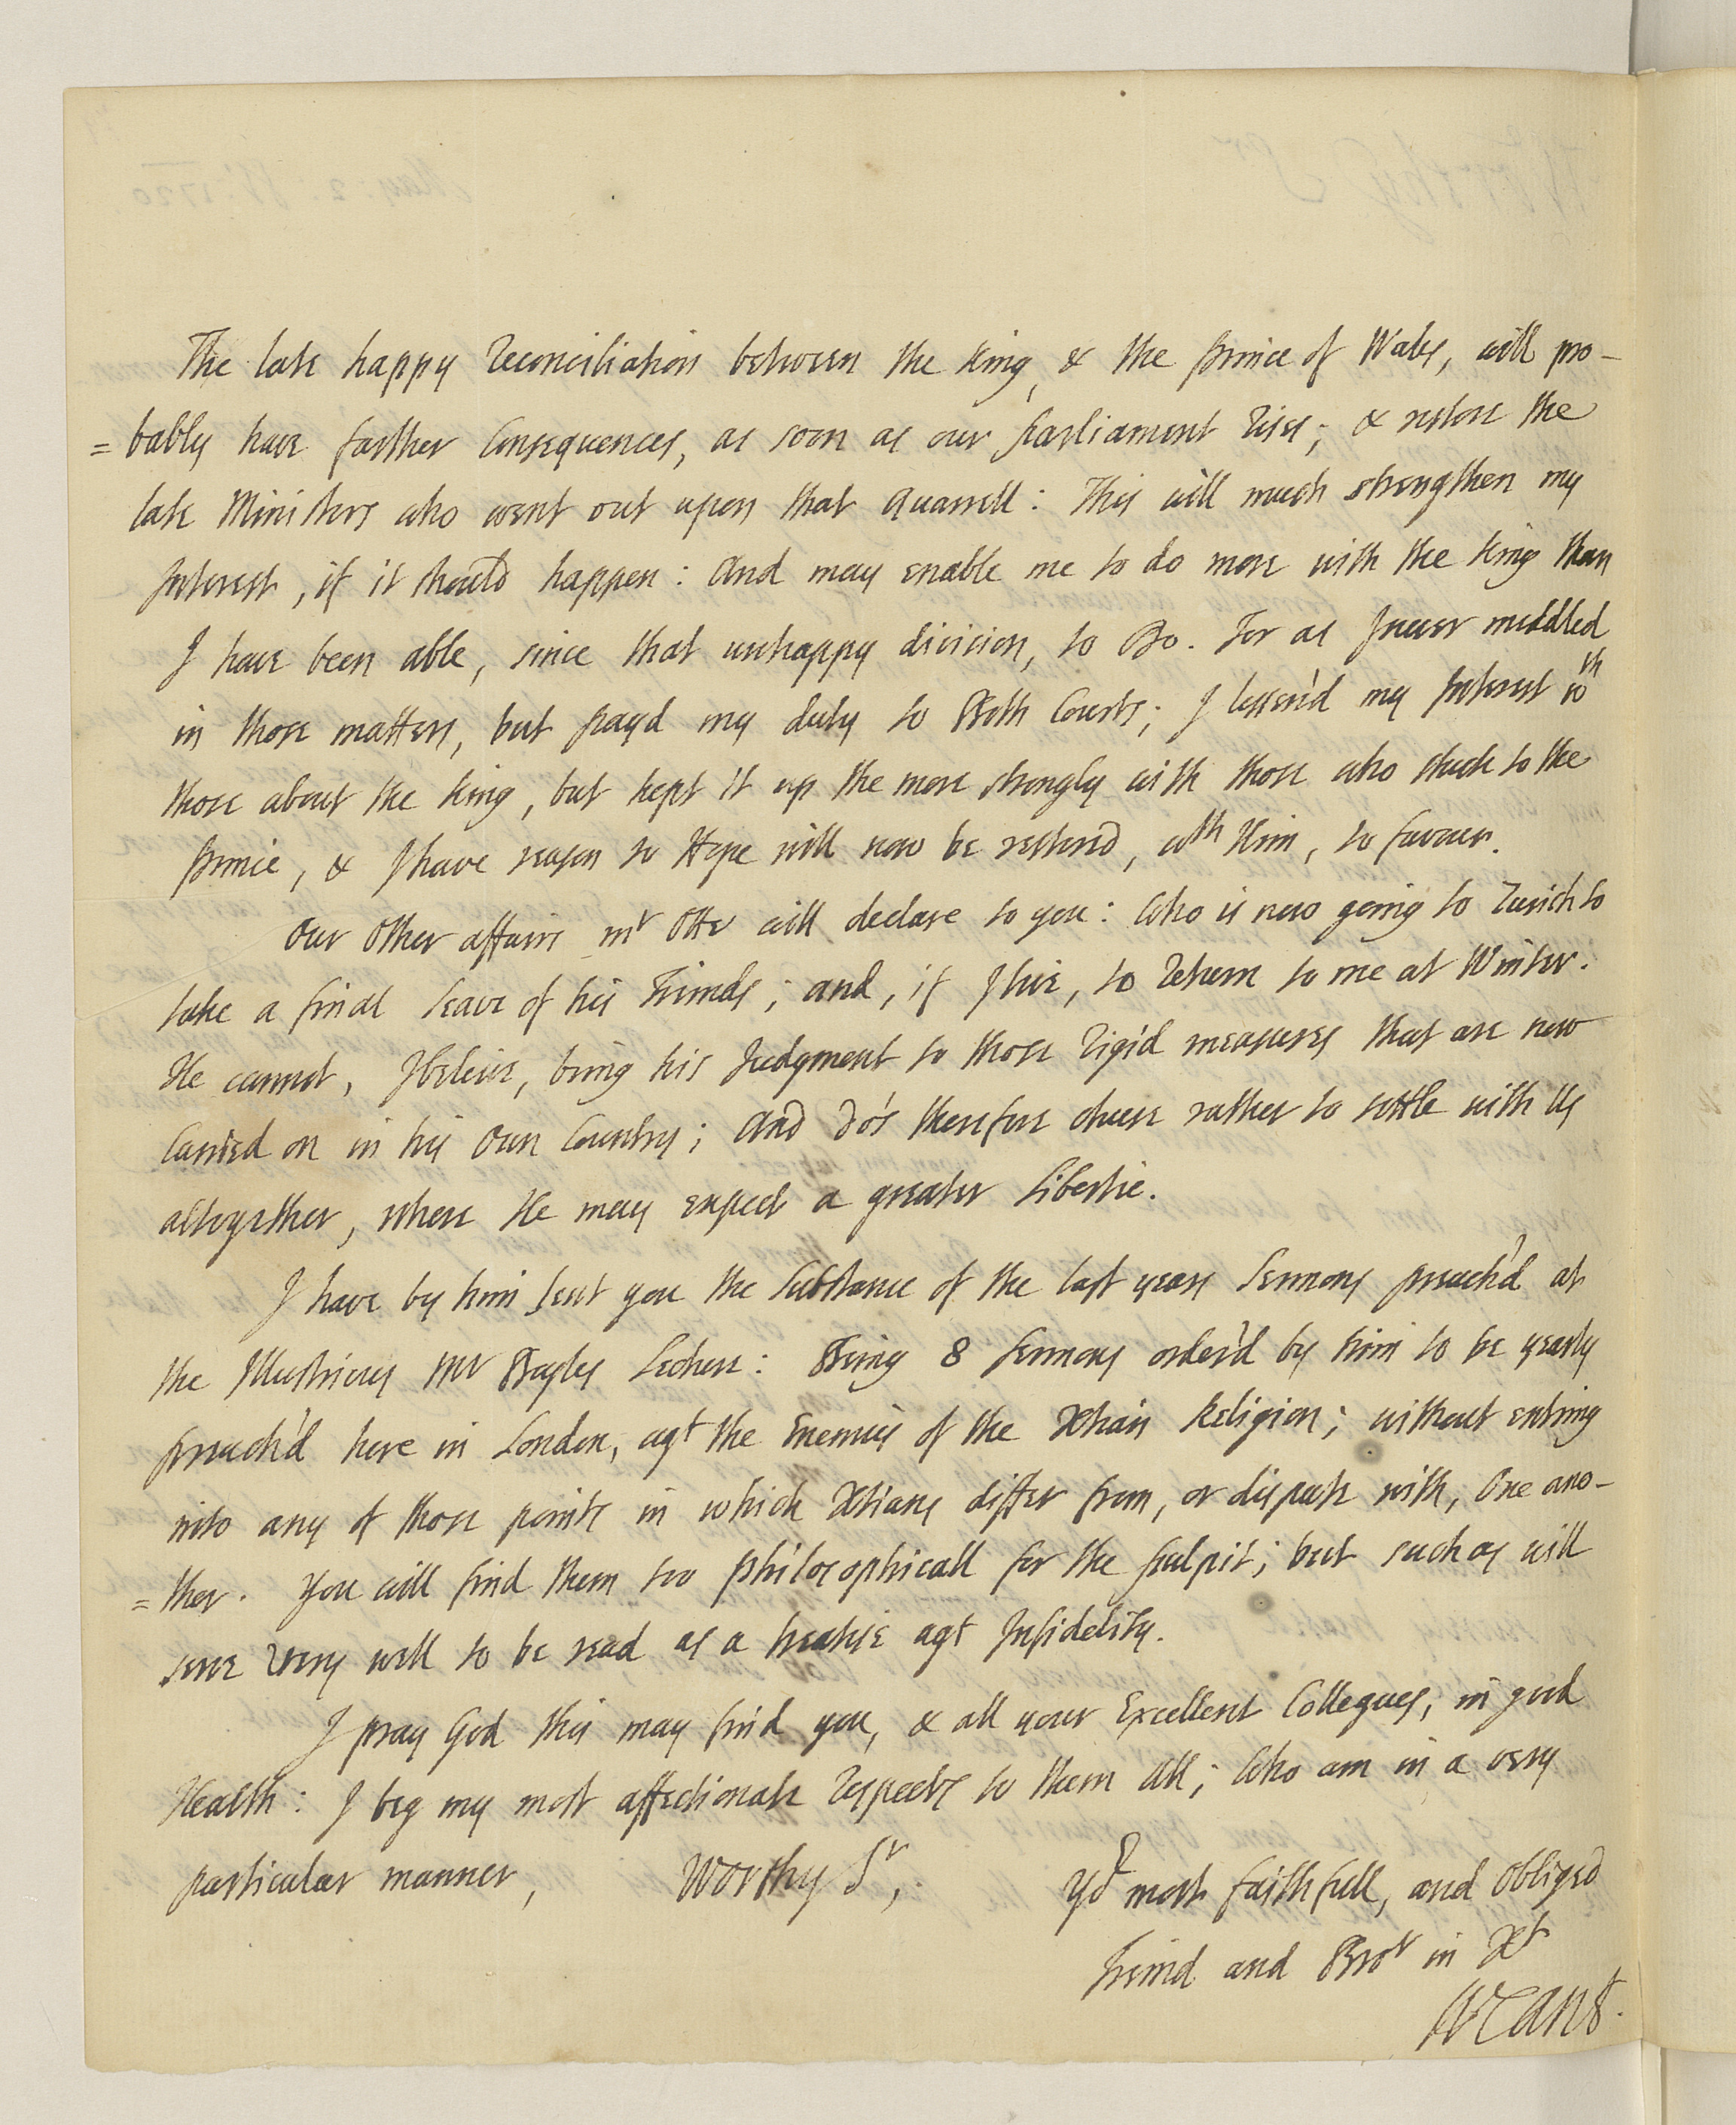 The late happy Reconciliation between the King, & the Prince of Wales, will pro-
= bably have farther Consequences, as soon as our Parliament Rises; & restore the
late Ministers who went out upon that Quarrell: This will much strengthen my
Interest, if it should happen: And may enable me to do more with the King than
I have been able, since that unhappy division, to Do. For as I never meddled
in those matters, but payd my duty to Both Courts; I lessen'd my Interest wth
those about the King, but kept it up the more strongly with those who stuck to the
Prince, & I have reason to Hope will now be restored, wth Him, to favour.
Our Other affairs mr Otte will declare to you: Who is now going to Zurich to
take a finall leave of his Friends; and, if I live, to Return to me at Winter.
He cannot, I beleive, bring his Judgment to those Rigid measures that are now
Carried on in his Own Country; And do's therefore chuse rather to settle with Us
altogether, where He may expect a greater Libertie.
I have by him sent you the Substance of the last years Sermons preach'd at
the Illustrious Mr Boyles Lecture: Being 8 Sermons order'd by him to be yearly
preach'd here in London, agt the Enemies of the Xtian Religion; without entring
into any of those points in which Xtians differ from, or dispute with, One ano-
= ther. You will find them too philosophicall for the Pulpit; but such as will
serve Very well to be read as a treatise agt Infidelity.
I pray God this may find you, & all your Excellent Collegues, in good
Health: I beg my most affectionate Respects to them All; Who am in a very
particular manner, Worthy Sr,
Yor most faithfull, and Obliged
Freind and Bror in Xt
W Cant.